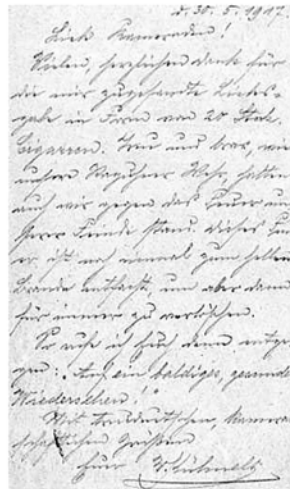 d. 30. 5. 1917.
Liebe Kameraden!
Vielen, herzlichen Dank für
die mir zugesandte Liebes-
gabe in Form von 20 Stck.
Zigarren. Treu und brav, wie
unsere Raguhner Wehr, halten
auch wir gegen das Feuer un-
serer Feinde stand. Dieses Feu-
er ist noch einmal zum hellen
Brande entfacht, um aber dann
für immer zu verlöschen.
So rufe ich Euch denn entge-
gen: „Auf ein baldiges, gesundes
Wiedersehen!"
Mit treudeutschen, kamerad-
schaftlichen Grüßen
Euer